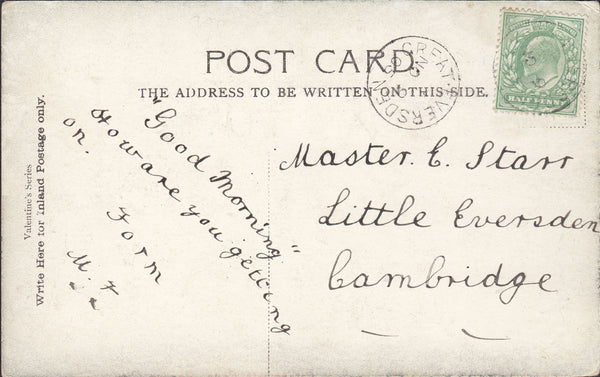 POST CARD.
THE ADDRESS TO BE WRITTEN ON THIS SIDE.
Valentine's Series
Write Here for Inland Postage only.
"Good Morning"
How are you getting
on.
Form
M. F
GREAT EVERSDEN
HALFPENNY
Master. E. Starr
Little Eversden
Cambridge